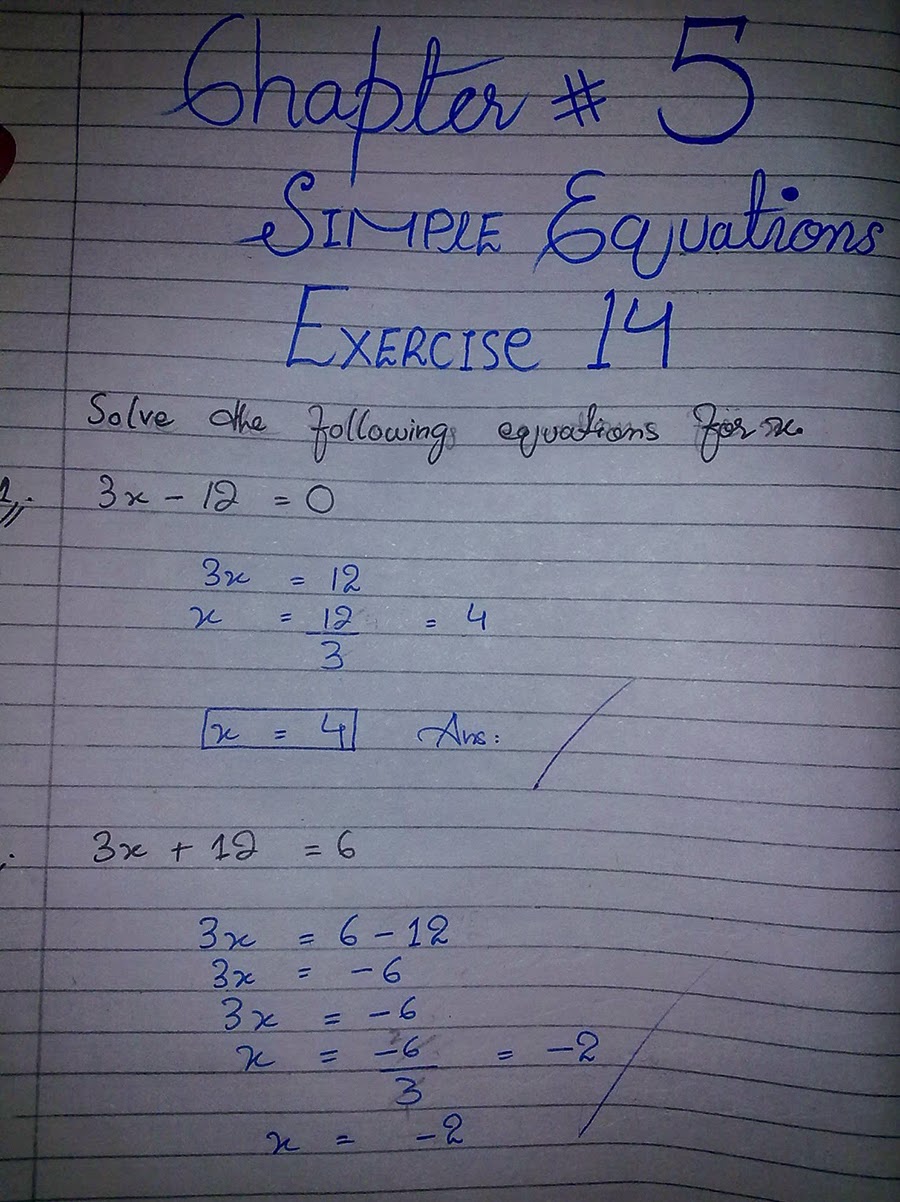 Chapter # 5
SIMPLE Equations
EXERCISE 14
Solve the following equations for x
1. 3x - 12 = 0
3x = 12
x = 12/3 = 4
x = 4 Ans:
3x + 12 = 6
3x = 6 - 12
3x = -6
3x = -6
x = -6/3 = -2
x = -2